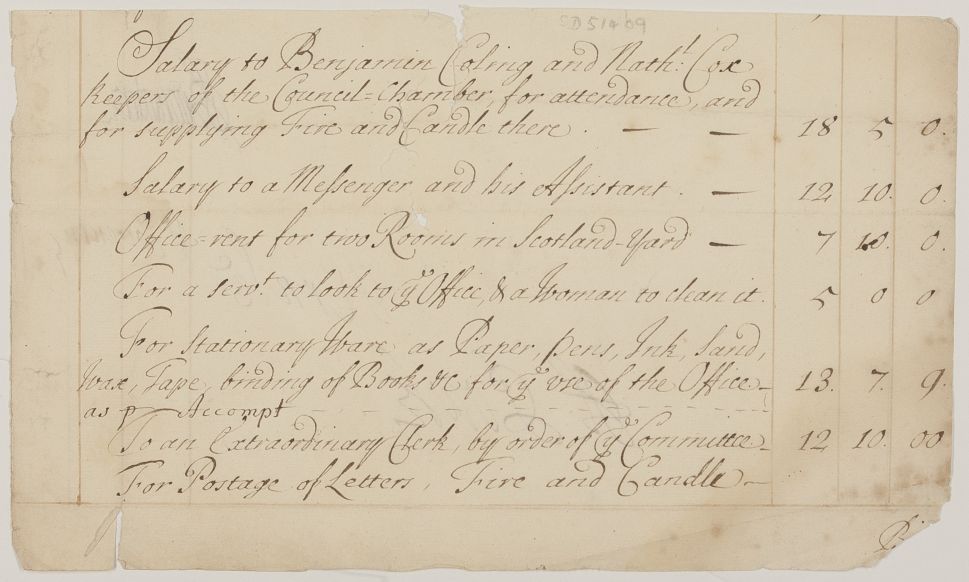 SD51409
Salary to Benjamin Coling and Nath:l Cox
Keepers of the Council=Chamber, for attendance, and
for supplying Fire and Candle there . — — 18 5 0.
Salary to a Messenger and his Assistant . — 12 10. 0.
Office=rent for two Rooms in Scotland-Yard — 7 10. 0.
For a serv.t to look to ye Office, & a Woman to clean it. 5 0 0
For Stationary Ware as Paper, Pens, Ink, Sand,
Wax, Tape, binding of Books &c for ye vse of the Office - 13. 7. 9.
as p Accompt
To an Extraordinary Clerk, by order of ye Committee - 12 10. 00
For Postage of Letters, Fire and Candle -